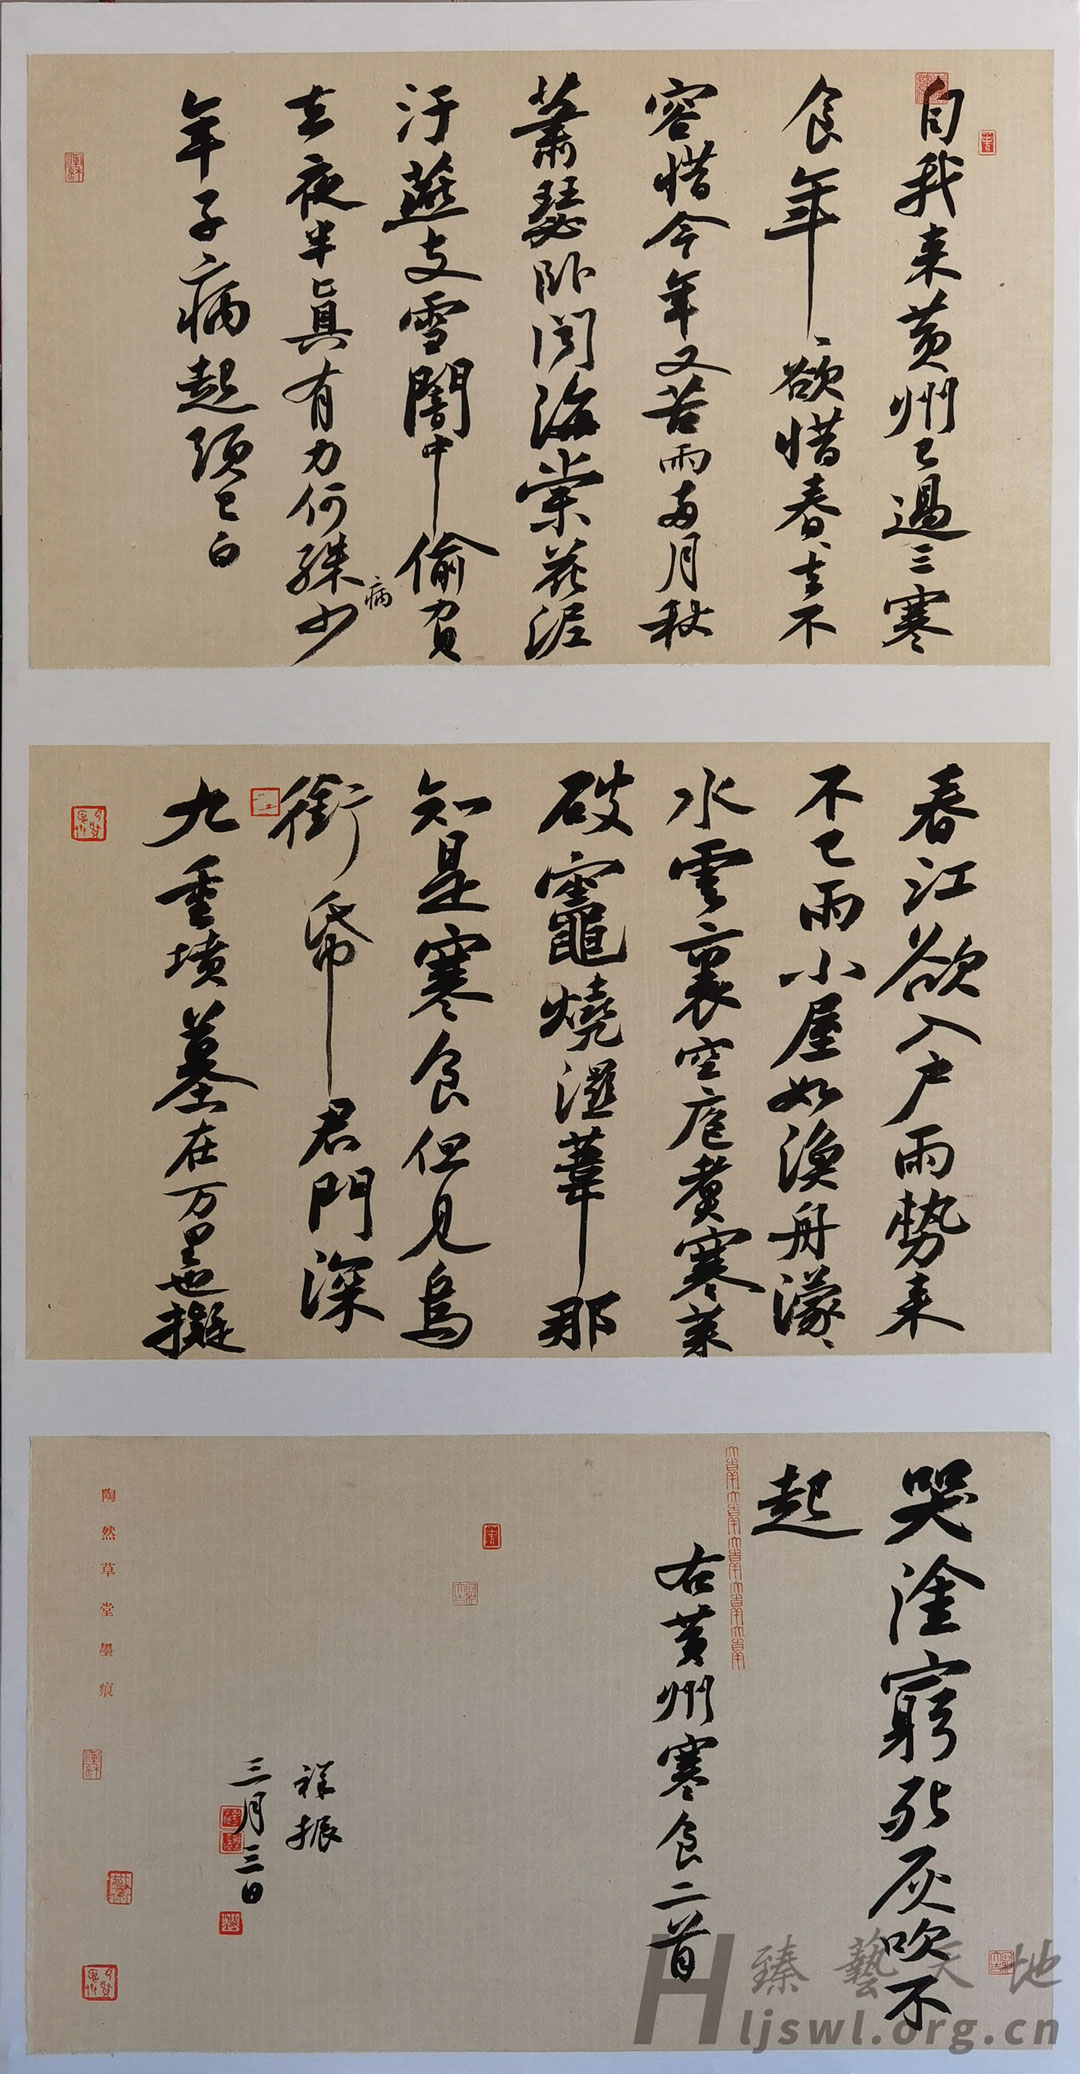 自我来黄州已過三寒
食年、欲惜春、去不
容惜今年又苦雨兩月秋
蕭瑟卧闻海棠花泥
汙燕支雪闇中偷負
去夜半真有力何殊少
病
年子病起頭已白
春江欲入户雨勢来
不已雨小屋如漁舟濛、
水雲裏空庖煮寒菜
破竈燒濕葦那
知是寒食但見烏
銜帋君門深
九重墳墓在万里也擬
哭塗窮死灰吹不
起
右黄州寒食二首
祥振
三月三日
陶然草堂墨痕
臻藝天地
Hljswl.org.cn